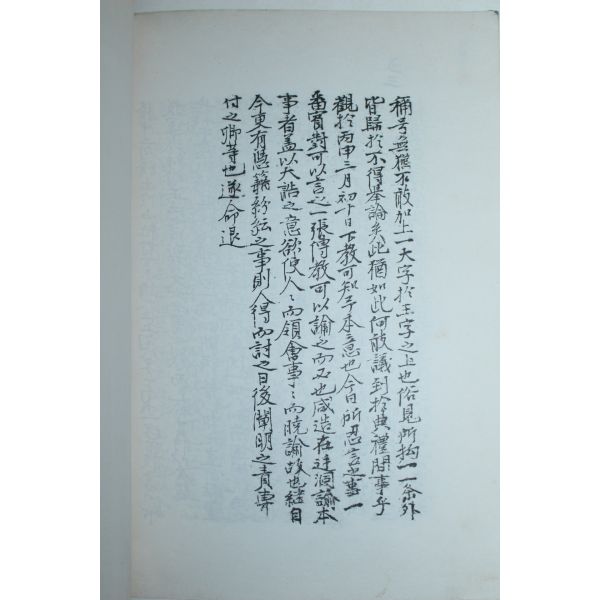 稱号無獲不敢加上一大字於王字之上也俗見所拘一一条外
皆歸於不得擧論矣此猶如此何敢議到於典禮間事乎
觀於丙申三月初十日下敎可知予本意也今日所忍言之事一
番實對可以言之一張傳敎可以諭之而必也咸造在廷洞諭本
事者盖以大誥之意欲使人〻而領會事〻而曉諭故也継自
今更有憑籍紛紜之事則人得而討之日後闡明之責專
付之卿等也遂命退